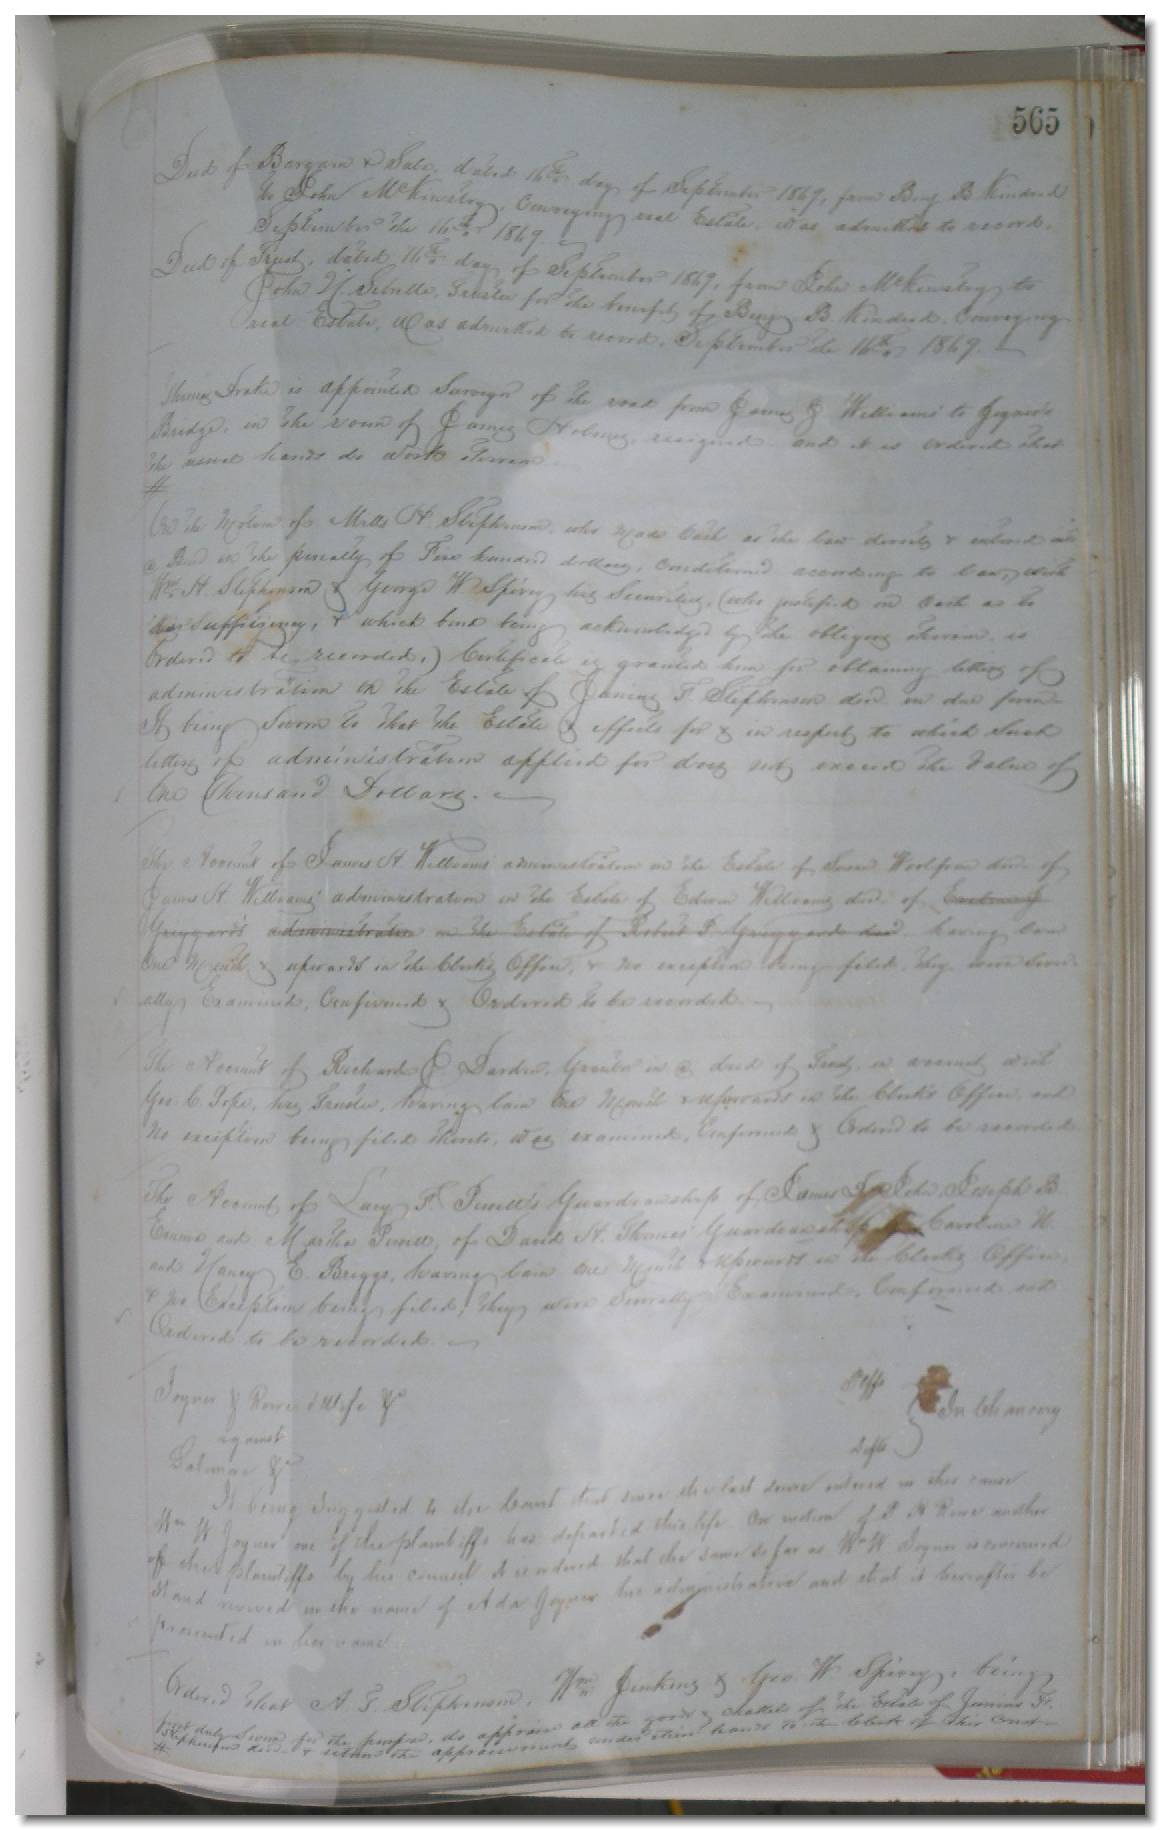 565
Deed of Bargain & Sale, dated 16th day of September 1869, from Benj B Kindred
to John McKinstry, Conveying real Estate, was admitted to record,
September the 16th 1869.
Deed of Trust, dated, 16th day of September 1869, from John McKinstry to
John N. Sebrelle, Trustee for the benefit of Benj B Kindred, Conveying
real Estate, was admitted to record, September the 16th 1869.
Thomas Drake is appointed Surveyor of the road from James J Williams' to Joyner's
Bridge, in the room of James Holmes, resigned and it is ordered that
the usual hands do work thereon
On the Motion of Mills H. Stephenson, who made Oath as the law directs & entered into
a Bond in the penalty of Five hundred dollars, Conditioned according to law, with
Wm. H. Stephenson & George W Spivey his Securities, (who justified on Oath as to
their sufficiency, & which bond being acknowledged by the obligors therein, is
Ordered to be recorded,) Certificate is granted him for obtaining letters of
administration on the Estate of Junius F. Stephenson decd. in due form
It being Sworn to that the Estate & effects for & in respect to which Such
letters of administration applied for does not exceed the Value of
One Thousand Dollars.
The Account of James H. Williams' administration on the Estate of Woolfren decd. of
James H. Williams' administration on the Estate of Edwin Williams decd. of
Griggard's administration on the Estate of Robert P. Griggard decd. having lain
One Month & upwards in the Clerk's Office, & no exception being filed, they were Sever-
ally Examined, Confirmed & Ordered to be recorded
The Account of Richard E Darden, Grantor in a deed of Trust, in account with
Geo. C. Pope, his Trustee, having lain One Month & upwards in the Clerk's Office, and
No exception being filed thereto, was examined, Confirmed & Ordered to be recorded
The Account of Lucy F. Powell's Guardianship of James John, Joseph B.
Emma and Martha Powell, of David H. Thomas' Guardianship Caroline N.
and Nancy E. Briggs, having lain One Month & upwards in the Clerk's Office,
& no Exception being filed, they were Severally Examined, Confirmed and
Ordered to be recorded.
Joyner & Rowe & Wife &c Plffs
against In Chancery
&c Defts
It being Suggested to the Court that since the last decree entered in this cause
Wm W Joyner one of the plaintiffs has departed this life. On motion of P H Rowe another
of the plaintiffs by his counsel it is ordered that the same so far as Wm W. Joyner is concerned
stand revived in the name of Ada Joyner his administratrix and that it hereafter be
prosecuted in her name
Ordered that A. F. Stephenson, Wm Jenkins & Geo. W. Spivey, being
first duly Sworn for the purpose, do appraise all the goods & chattels of the Estate of Junius F.
Stephenson decd. & return the appraisement under their hands to the Clerk of this Court